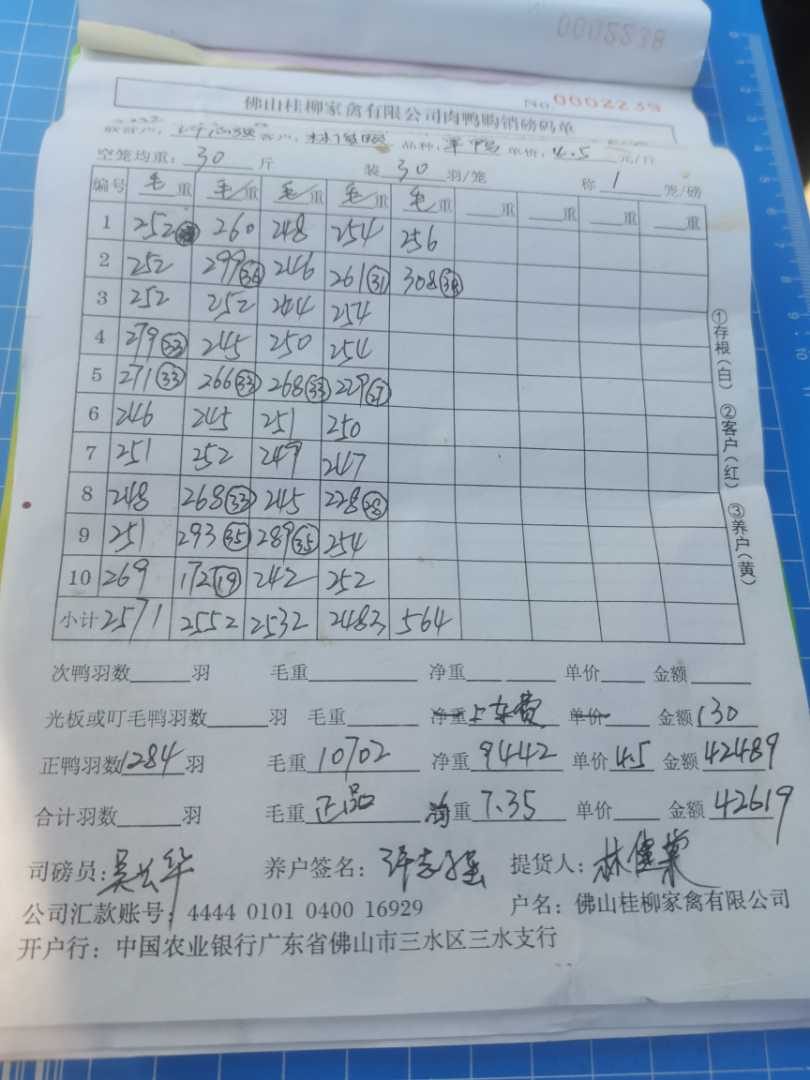 0002238
佛山桂柳家禽有限公司肉鸭购销磅码单 No 0002239
客户: 品种: 单价: 4.5 元/斤
空笼均重: 30 斤 装 30 羽/笼 称 1 笼/磅
编号 毛重 毛重 毛重 毛重 毛重 重 重 重 重
1 252 260 248 254 256
2 252 299(34) 246 261(31) 308(38)
3 252 252 244 254
4 279(33) 245 250 254
5 271(33) 266(33) 268(33) 229(27)
6 246 245 251 250
7 251 252 249 247
8 248 268(33) 245 228(28)
9 251 293(35) 289(35) 254
10 269 172(19) 242 252
小计 2571 2552 2532 2483 564
①存根(白) ②客户(红) ③养户(黄)
次鸭羽数 羽 毛重 净重 单价 金额
光板或叮毛鸭羽数 羽 毛重 净重上车费 单价 金额 130
正鸭羽数 1284 羽 毛重 10702 净重 9442 单价 4.5 金额 42489
合计羽数 羽 毛重 正品 重 7.35 单价 金额 42619
司磅员: 养户签名: 提货人:
公司汇款账号: 4444 0101 0400 16929 户名: 佛山桂柳家禽有限公司
开户行: 中国农业银行广东省佛山市三水区三水支行